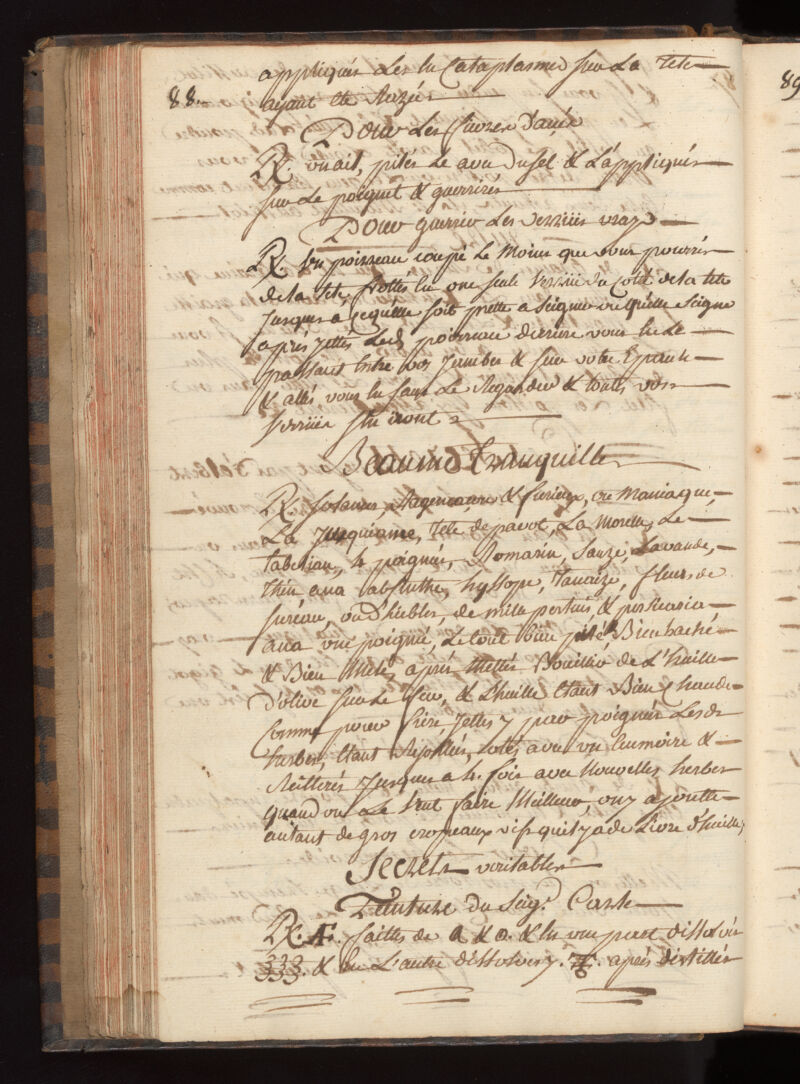 appliqués les lu Cataplasmes sur La Tete
88. ayant ete Razée
Pour Les fievres
R. un ail, pilés Le avec du sel & L'appliqués
sur Le poignet & guerrirés
Pour guerrir Les verrues
R. un poisseau coupé Le Moins que vous pourrés
de la tete, frottés lu une seule verrüe du Coté de la tete
Jusques a ce quelle soit prette a seigner ou quelle seigne
après jettés Led. poisseau deriere vous lu Le
passant Entre vos Jambes & sur votre Epaule
& allés vous lu sans Le Regarder & toutes vos
verrües iront
Beaume Tranquille
R. & furieux, ou Maniaque,
La Jusquiame, Tete de pavot, La Morelle, Le
Tabac, 4 poignées, Romarin, Sauze, Lavande,
Thin ana absinthe, hyssope, Tanaize, fleurs de
sureau, ou D'hiebles, de mille pertuis, & persicaria
ana une poignée, Le tout bien pilé Bien haché
& Bien Melé, après Mettés Bouillir de L'huille
D'olive sur Le feu, & L'huille Etant Bien Chaude
Comme pour frire Jettés y par poignées Lesd.
herbes, Etant Rissolées, otés, avec un Ecumoire &
Reitterés Jusques a 4. fois avec Nouvelles herbes
quand on Le Veut faire Meilleur, on y ajoutte
autant de gros crapeaux vifs quil y a de Livre D'huille,
Secrets veritables
Teinture du Seigr.
R. faittes de & & lu une part dissolvés
333. & lu L'autre dissolves y. après distillés